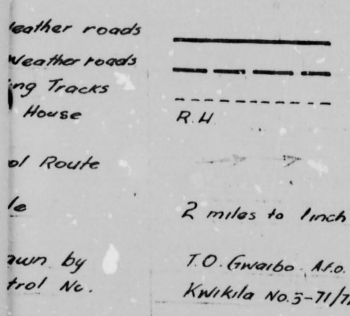 leather roads
Weather roads
ng Tracks
House R.H
ol Route
le 2 miles to 1inch
awn by T.O. Gwaibo. A.f.o.
trol No. Kwikila No.3-71/7